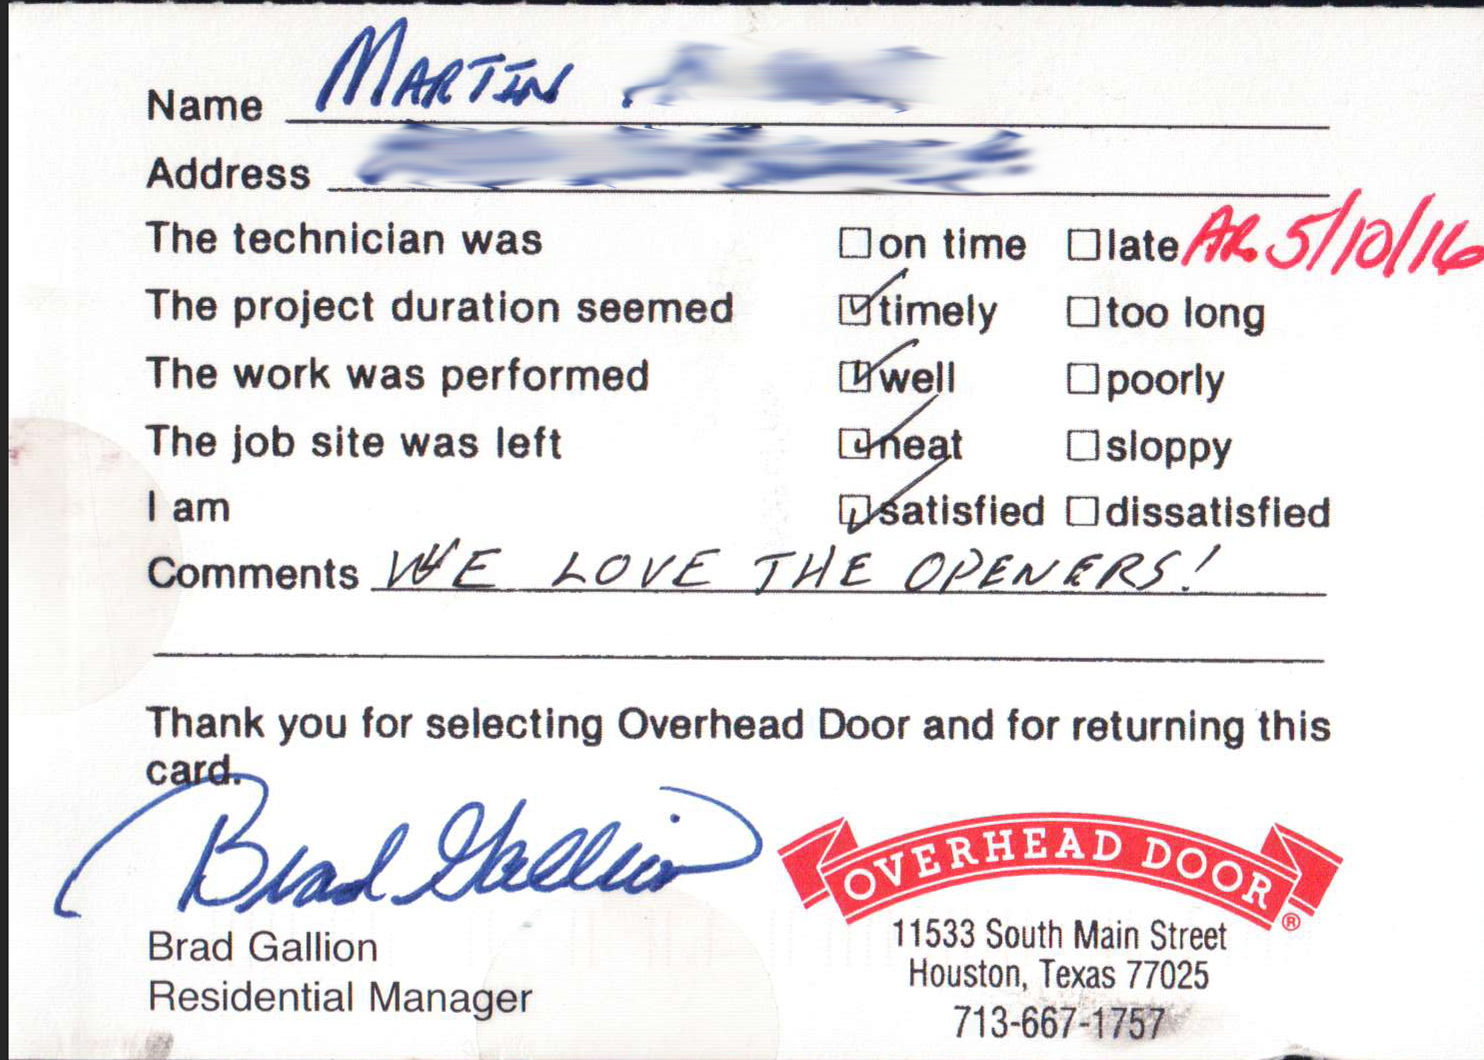 Name MARTIN
Address
The technician was ☐ on time ☐ late AR 5/10/16
The project duration seemed ☑ timely ☐ too long
The work was performed ☑ well ☐ poorly
The job site was left ☑ neat ☐ sloppy
I am ☑ satisfied ☐ dissatisfied
Comments WE LOVE THE OPENERS!
Thank you for selecting Overhead Door and for returning this
card.
Brad Gallion
Brad Gallion
Residential Manager
OVERHEAD DOOR®
11533 South Main Street
Houston, Texas 77025
713-667-1757